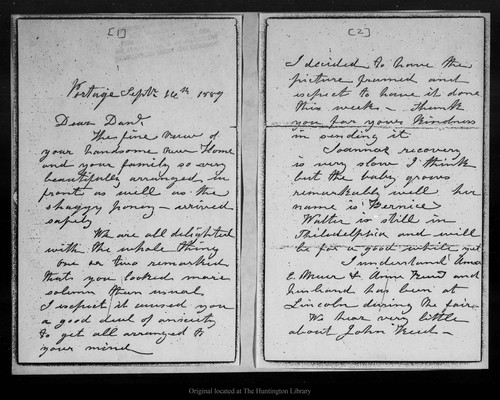 [1]
Portage Sept 16th 1889
Dear Danl.
This fine view of
your handsome new Home
and your family so very
beautifully arranged in
front as well as the
shaggy poney - arrived
safely
We are all delighted
with the whole thing
one or two remarked
that you looked more
solumn than usual
I expect it caused you
a good deal of anxiety
to get all arranged to
your mind
[2]
I decided to have the
picture framed and
expect to have it done
this week - Thank
you for your kindness
in sending it
Joannas recovery
is very slow I think
but the baby grows
remarkably well her
name is "Bernice"
Walter is still in
Philadelphia and will
be for a good while yet
I understand
C. Muir & and
husband has been at
Lincoln during the fair
We hear very little
about John
Original located at The Huntington Library